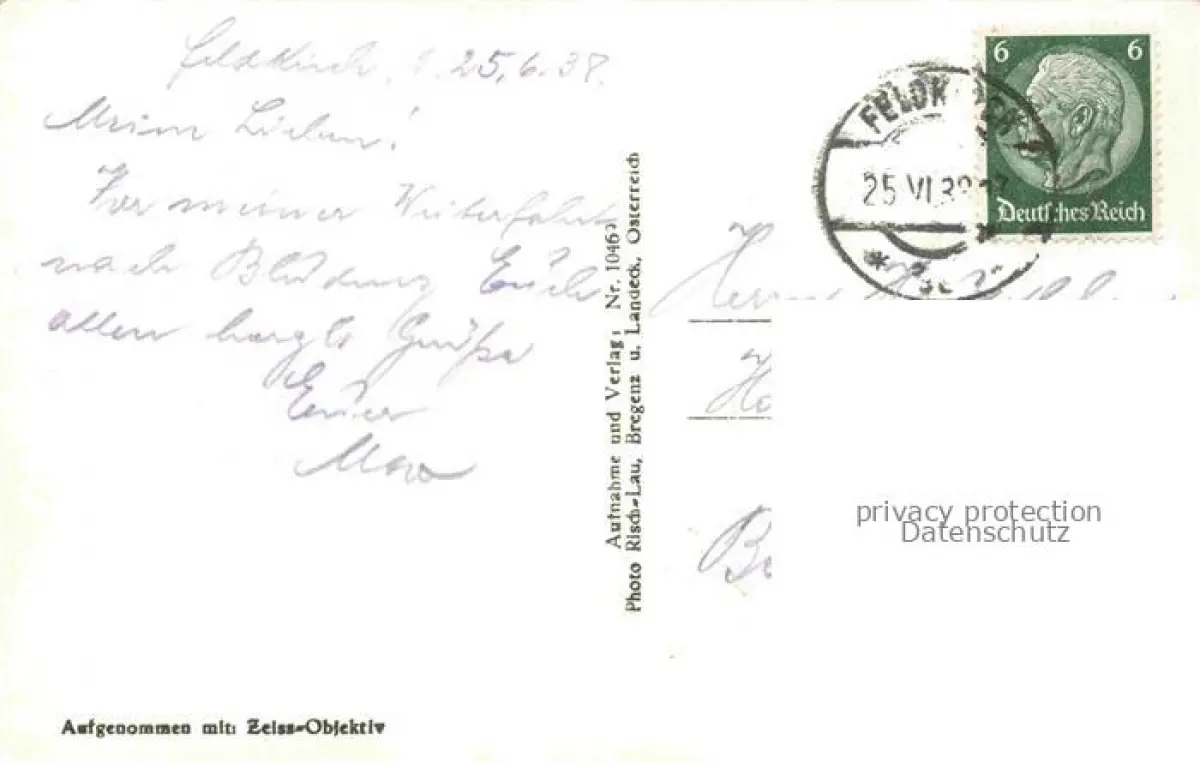 Feldkirch, 25.6.38.
Meine Lieben!
Vor meiner Weiterfahrt
nach Bludenz Euch
allen herzl. Grüße
Euer
Max
Aufgenommen mit: Zeiss-Objektiv
Aufnahme und Verlag: Nr. 1046
Photo Risch-Lau, Bregenz u. Landeck, Österreich
6 6
Deutsches Reich
FELDK
25 VI 38
Herrn
privacy protection
Datenschutz